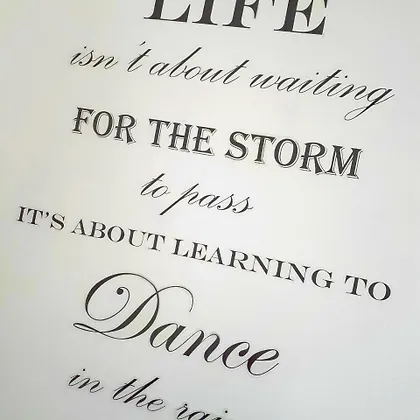 LIFE
isn't about waiting
FOR THE STORM
to pass
IT'S ABOUT LEARNING TO
Dance
in the rain